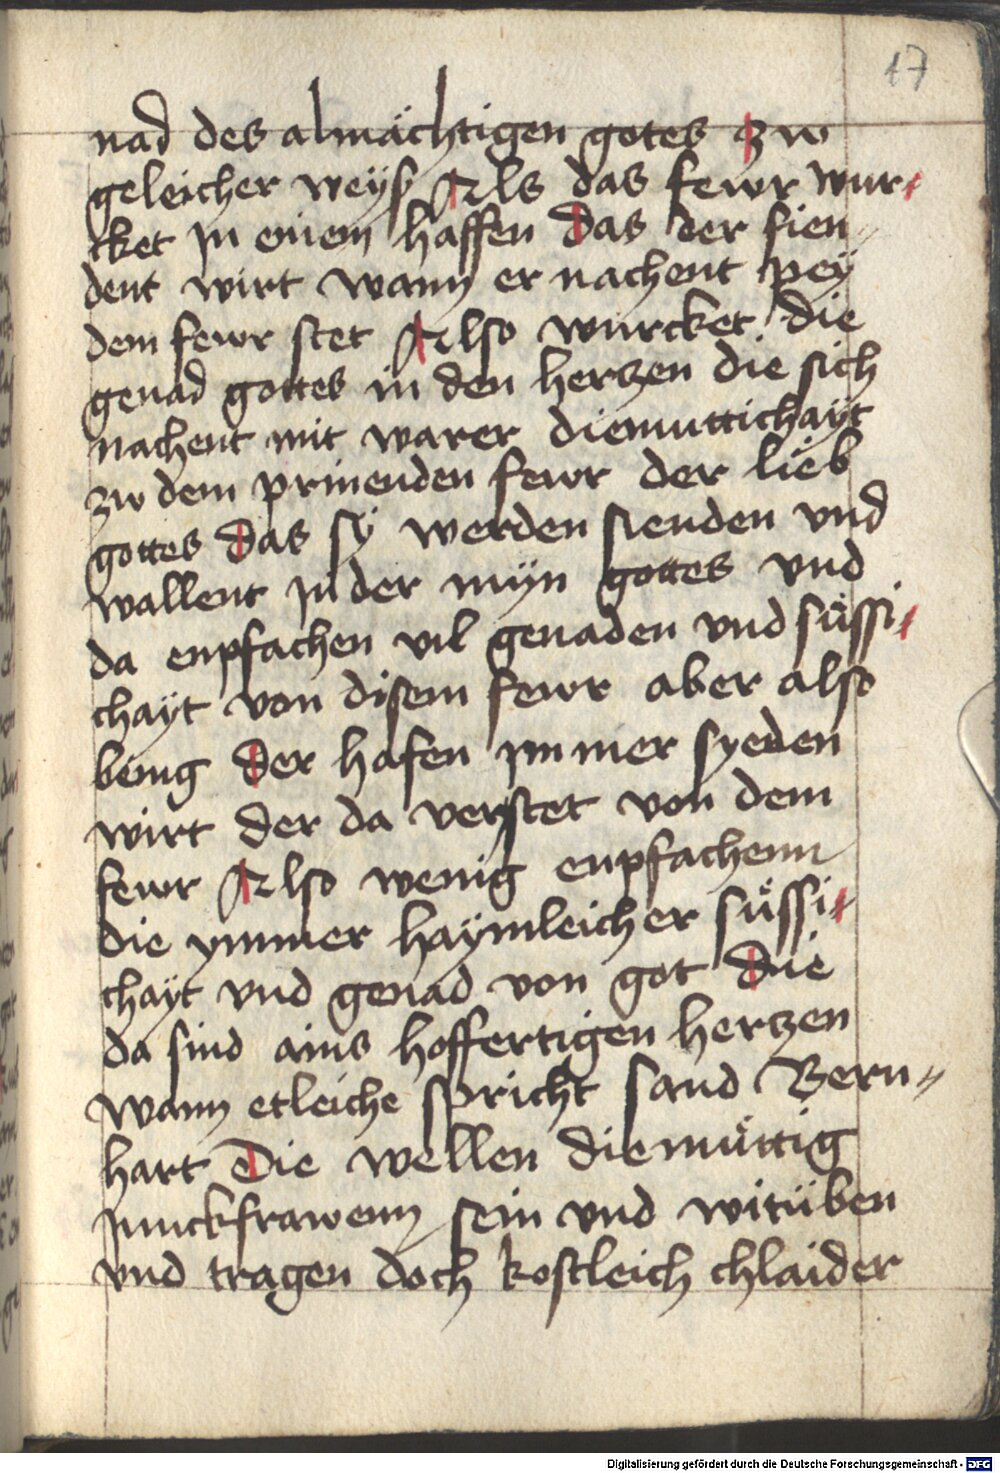 17
nad des almächtigen gotes zw
geleicher weys Als das fewr wur-
cket in einem haffen das der sien-
dent wirt wann er nachent pey
dem fewr stet Also wurcket die
genad gottes in den hertzen die sich
nachent mit warer diemuttichayt
zw dem prinenden fewr der lieb
gottes das sy werden sienden vnd
wallent in der myn gottes vnd
da enpfachen vil genaden vnd süssi-
chayt von disem fewr aber also
being der hafen immer syeden
wirt der da verstet von dem
fewr Also wenig enpfachenn
die ymmer haymleicher süssi-
chayt vnd genad von got die
da sind ains hoffertigen hertzen
wann etleiche spricht sand Bern-
hart Die wellen diemüttig
junckfrawenn sein vnd witüben
vnd tragen doch kostleich chlaider
Digitalisierung gefördert durch die Deutsche Forschungsgemeinschaft - DFG